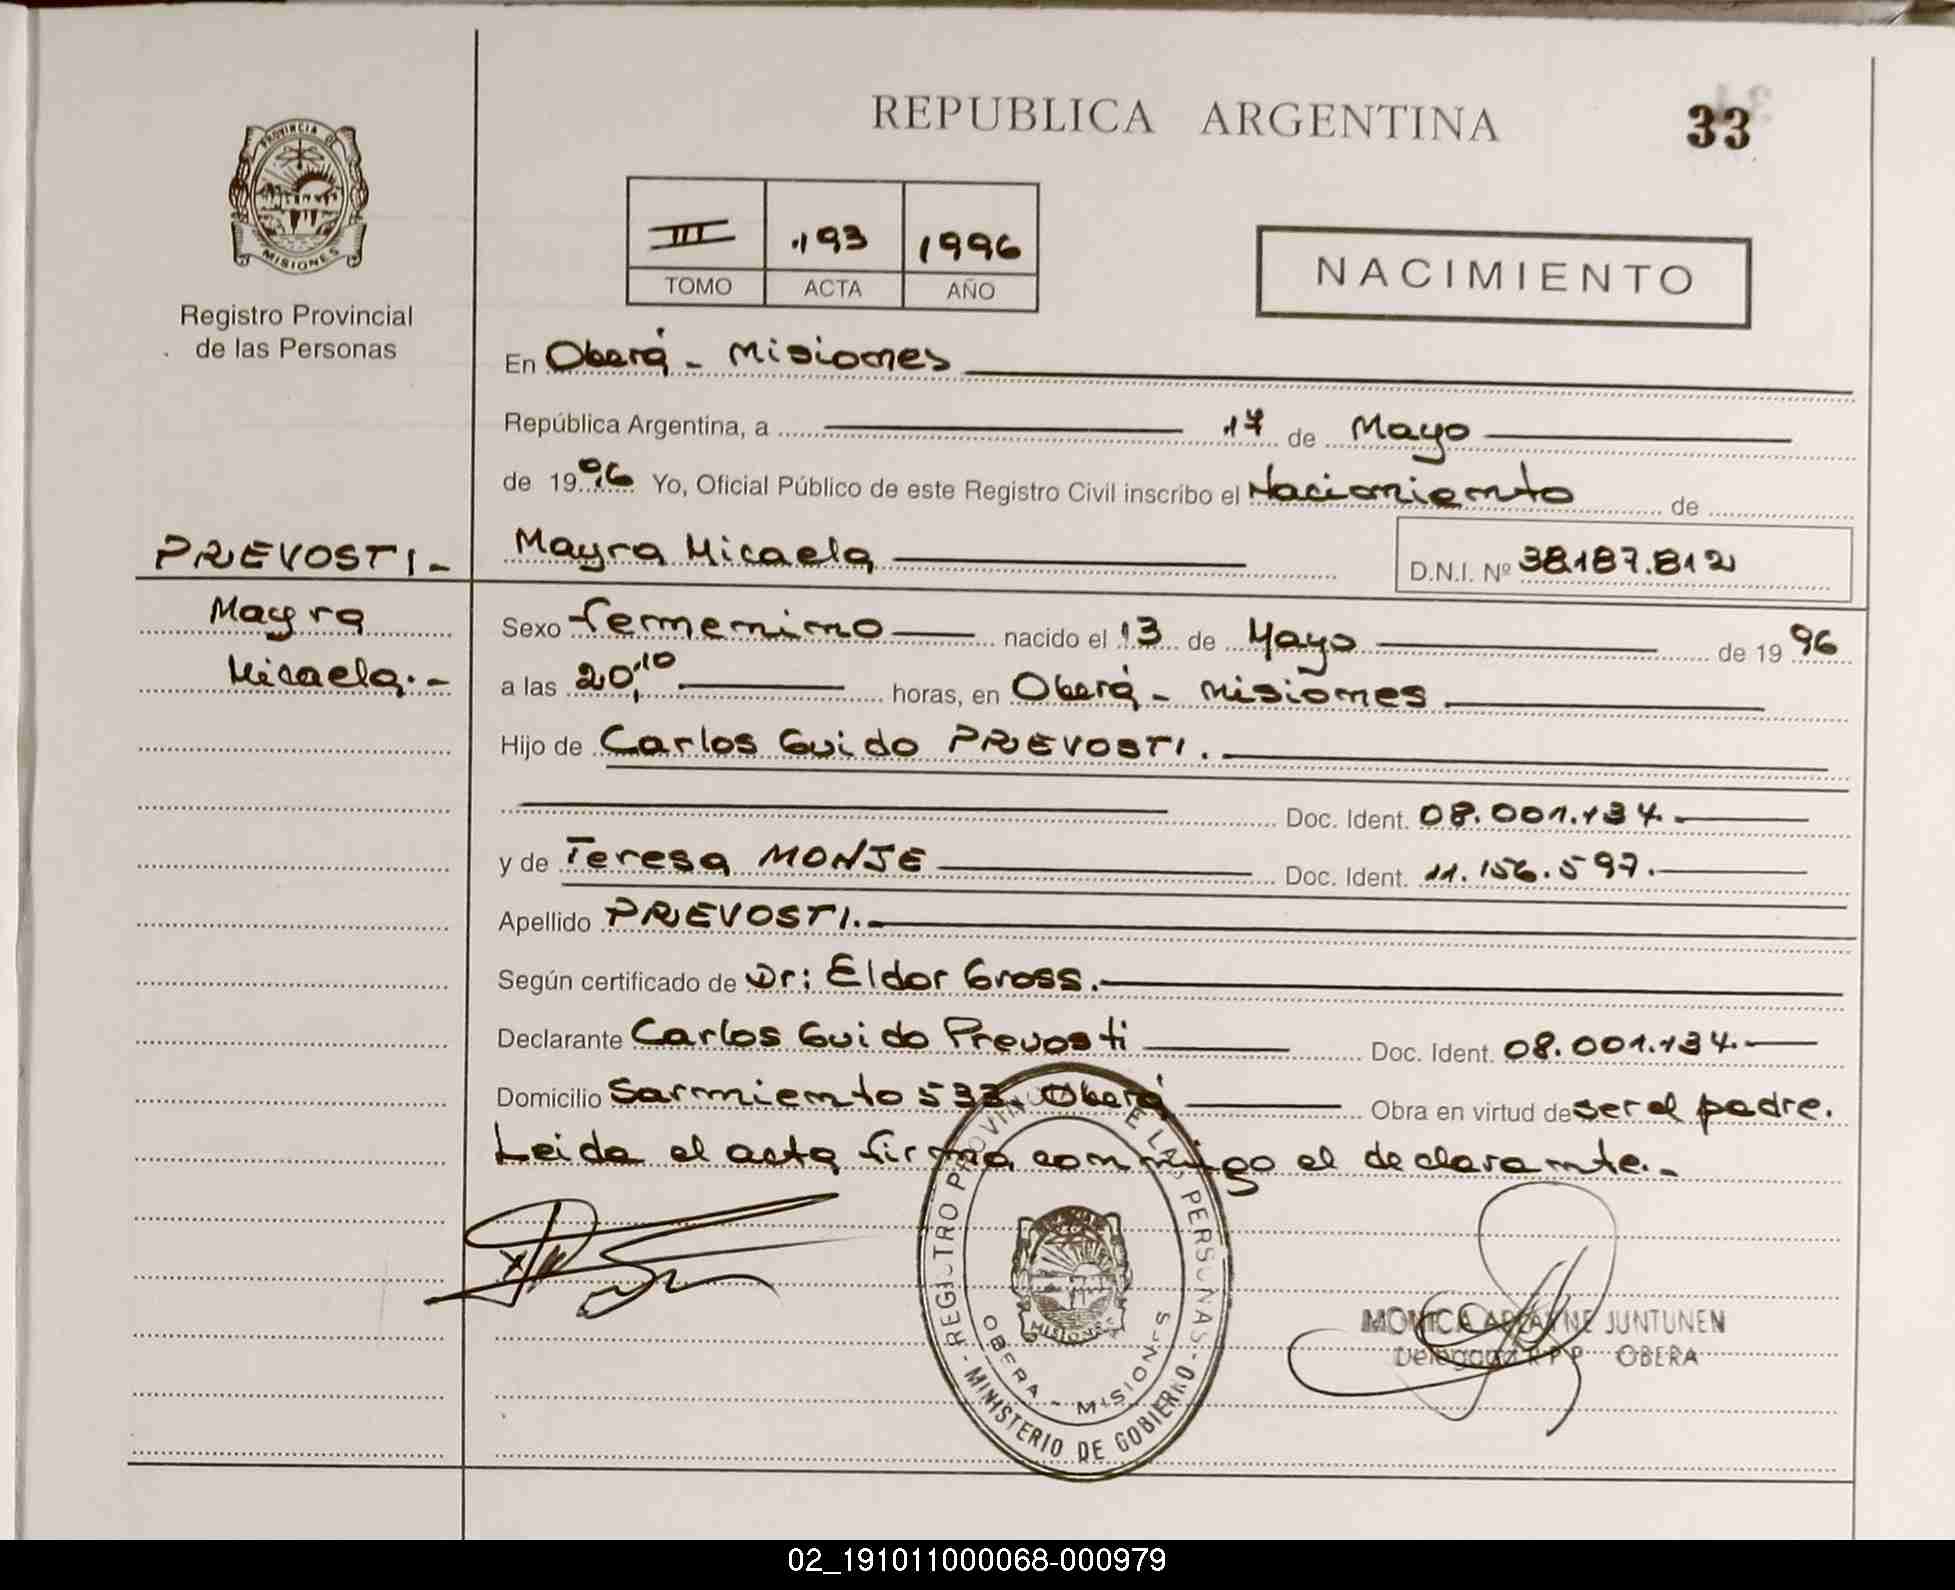 REPUBLICA ARGENTINA
33
PROVINCIA DE MISIONES
Registro Provincial
de las Personas
III 193 1996
TOMO ACTA AÑO
NACIMIENTO
En Oberá - Misiones
República Argentina, a 17 de Mayo
de 1996 Yo, Oficial Público de este Registro Civil inscribo el Nacimiento de
PREVOSTI - Mayra Micaela D.N.I. Nº 38.187.812
Mayra Sexo femenino nacido el 13 de Mayo de 1996
Micaela.- a las 20,10 horas, en Oberá - Misiones
Hijo de Carlos Guido PREVOSTI.
Doc. Ident. 08.001.134.
y de Teresa MONJE Doc. Ident. 11.156.597.
Apellido PREVOSTI.-
Según certificado de Dr: Eldor Gross.
Declarante Carlos Guido Prevosti Doc. Ident. 08.001.134.
Domicilio Sarmiento 533. Oberá Obra en virtud de ser el padre.
Leida el acta firma conmigo el declarante.-
REGISTRO PROVINCIAL DE LAS PERSONAS
MISIONES
OBERA - MISIONES
- MINISTERIO DE GOBIERNO -
MONICA JUNTUNEN
Delegada R P P OBERA
02_191011000068-000979